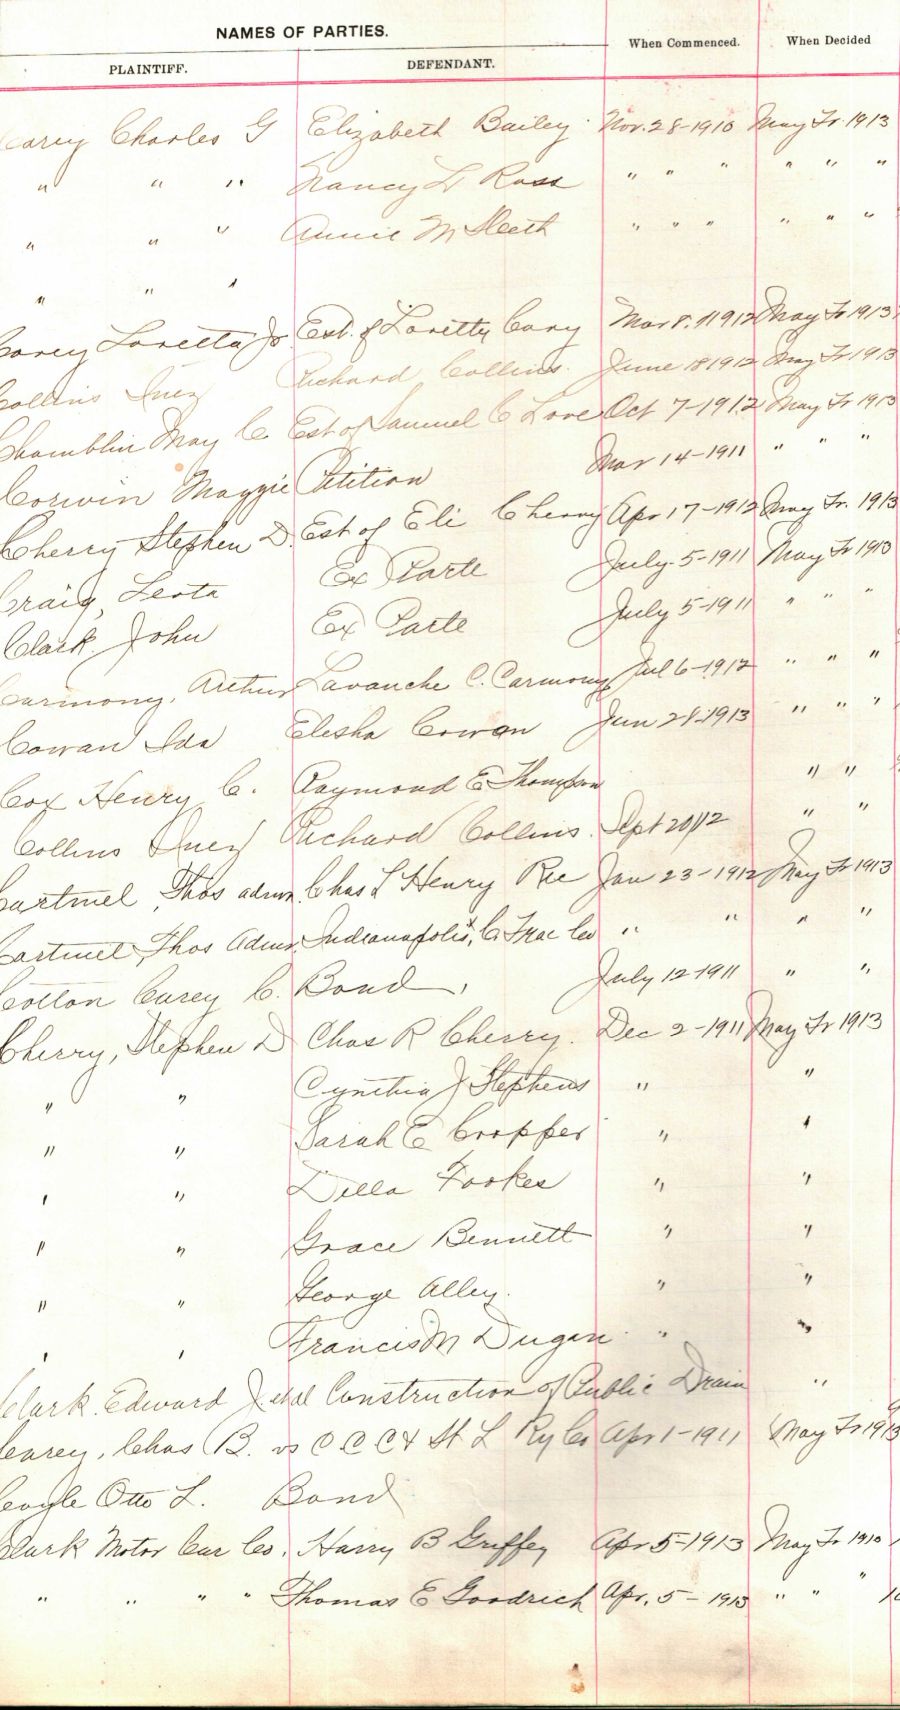 NAMES OF PARTIES.
When Commenced.
When Decided
PLAINTIFF.
DEFENDANT.
Carey Charles G Elizabeth Bailey Nov. 28-1910 May Tr. 1913
" " " Nancy L Ross " " " " " "
" " " Annie M Sleeth " " " " " "
" " "
Carey Loretta Jr Est. of Loretty Cary Mar 8. 1912 May Tr 1913
Collins Inez Richard Collins. June 18 1912 May Tr 1913
Chamblin May C Est of Samuel C Love Oct 7-1912 May Tr 1913
Corwin Maggie Petition Mar 14-1911 " " "
Cherry Stephen D. Est of Eli Cherry Apr 17-1912 May Tr. 1913
Craig, Leota Ex Parte July. 5-1911 May Tr 1913
Clark John Ex Parte July 5-1911 " " "
Carmony, Arthur Lavanche C. Carmony 6-1912 " " "
Cowan Ida Elisha Cowan Jun 28-1913 " " "
Cox Henry C. Raymond E Thompson " "
Collins Inez Richard Collins. Sept 20/12 " "
Cartmel, Thos admr. Chas L Henry Rec Jan 23-1912 May Tr 1913
Cartmel, Thos Admr. Indianapolis & C. Trac Co " " " "
Cotton Carey C. Bond, July 12-1911 " "
Cherry, Stephen D Chas R Cherry. Dec 2-1911 May Tr 1913
" " Cynthia J Stephens " "
" " Sarah E Cropper " "
" " Della Fookes " "
" " Grace Bennett " "
" " George Alley. " "
" " Francis M Dugan " "
Clark. Edward J. et al Construction of Public Drain "
Carey, Chas B. vs C C C & St L Ry Co Apr 1-1911 May Tr 1913
Coyle Otto L. Bond
Clark Motor Car Co. Harry B Griffey Apr 5-1913 May Tr 1913
" " " " Thomas E Goodrich Apr. 5-1913 " " "